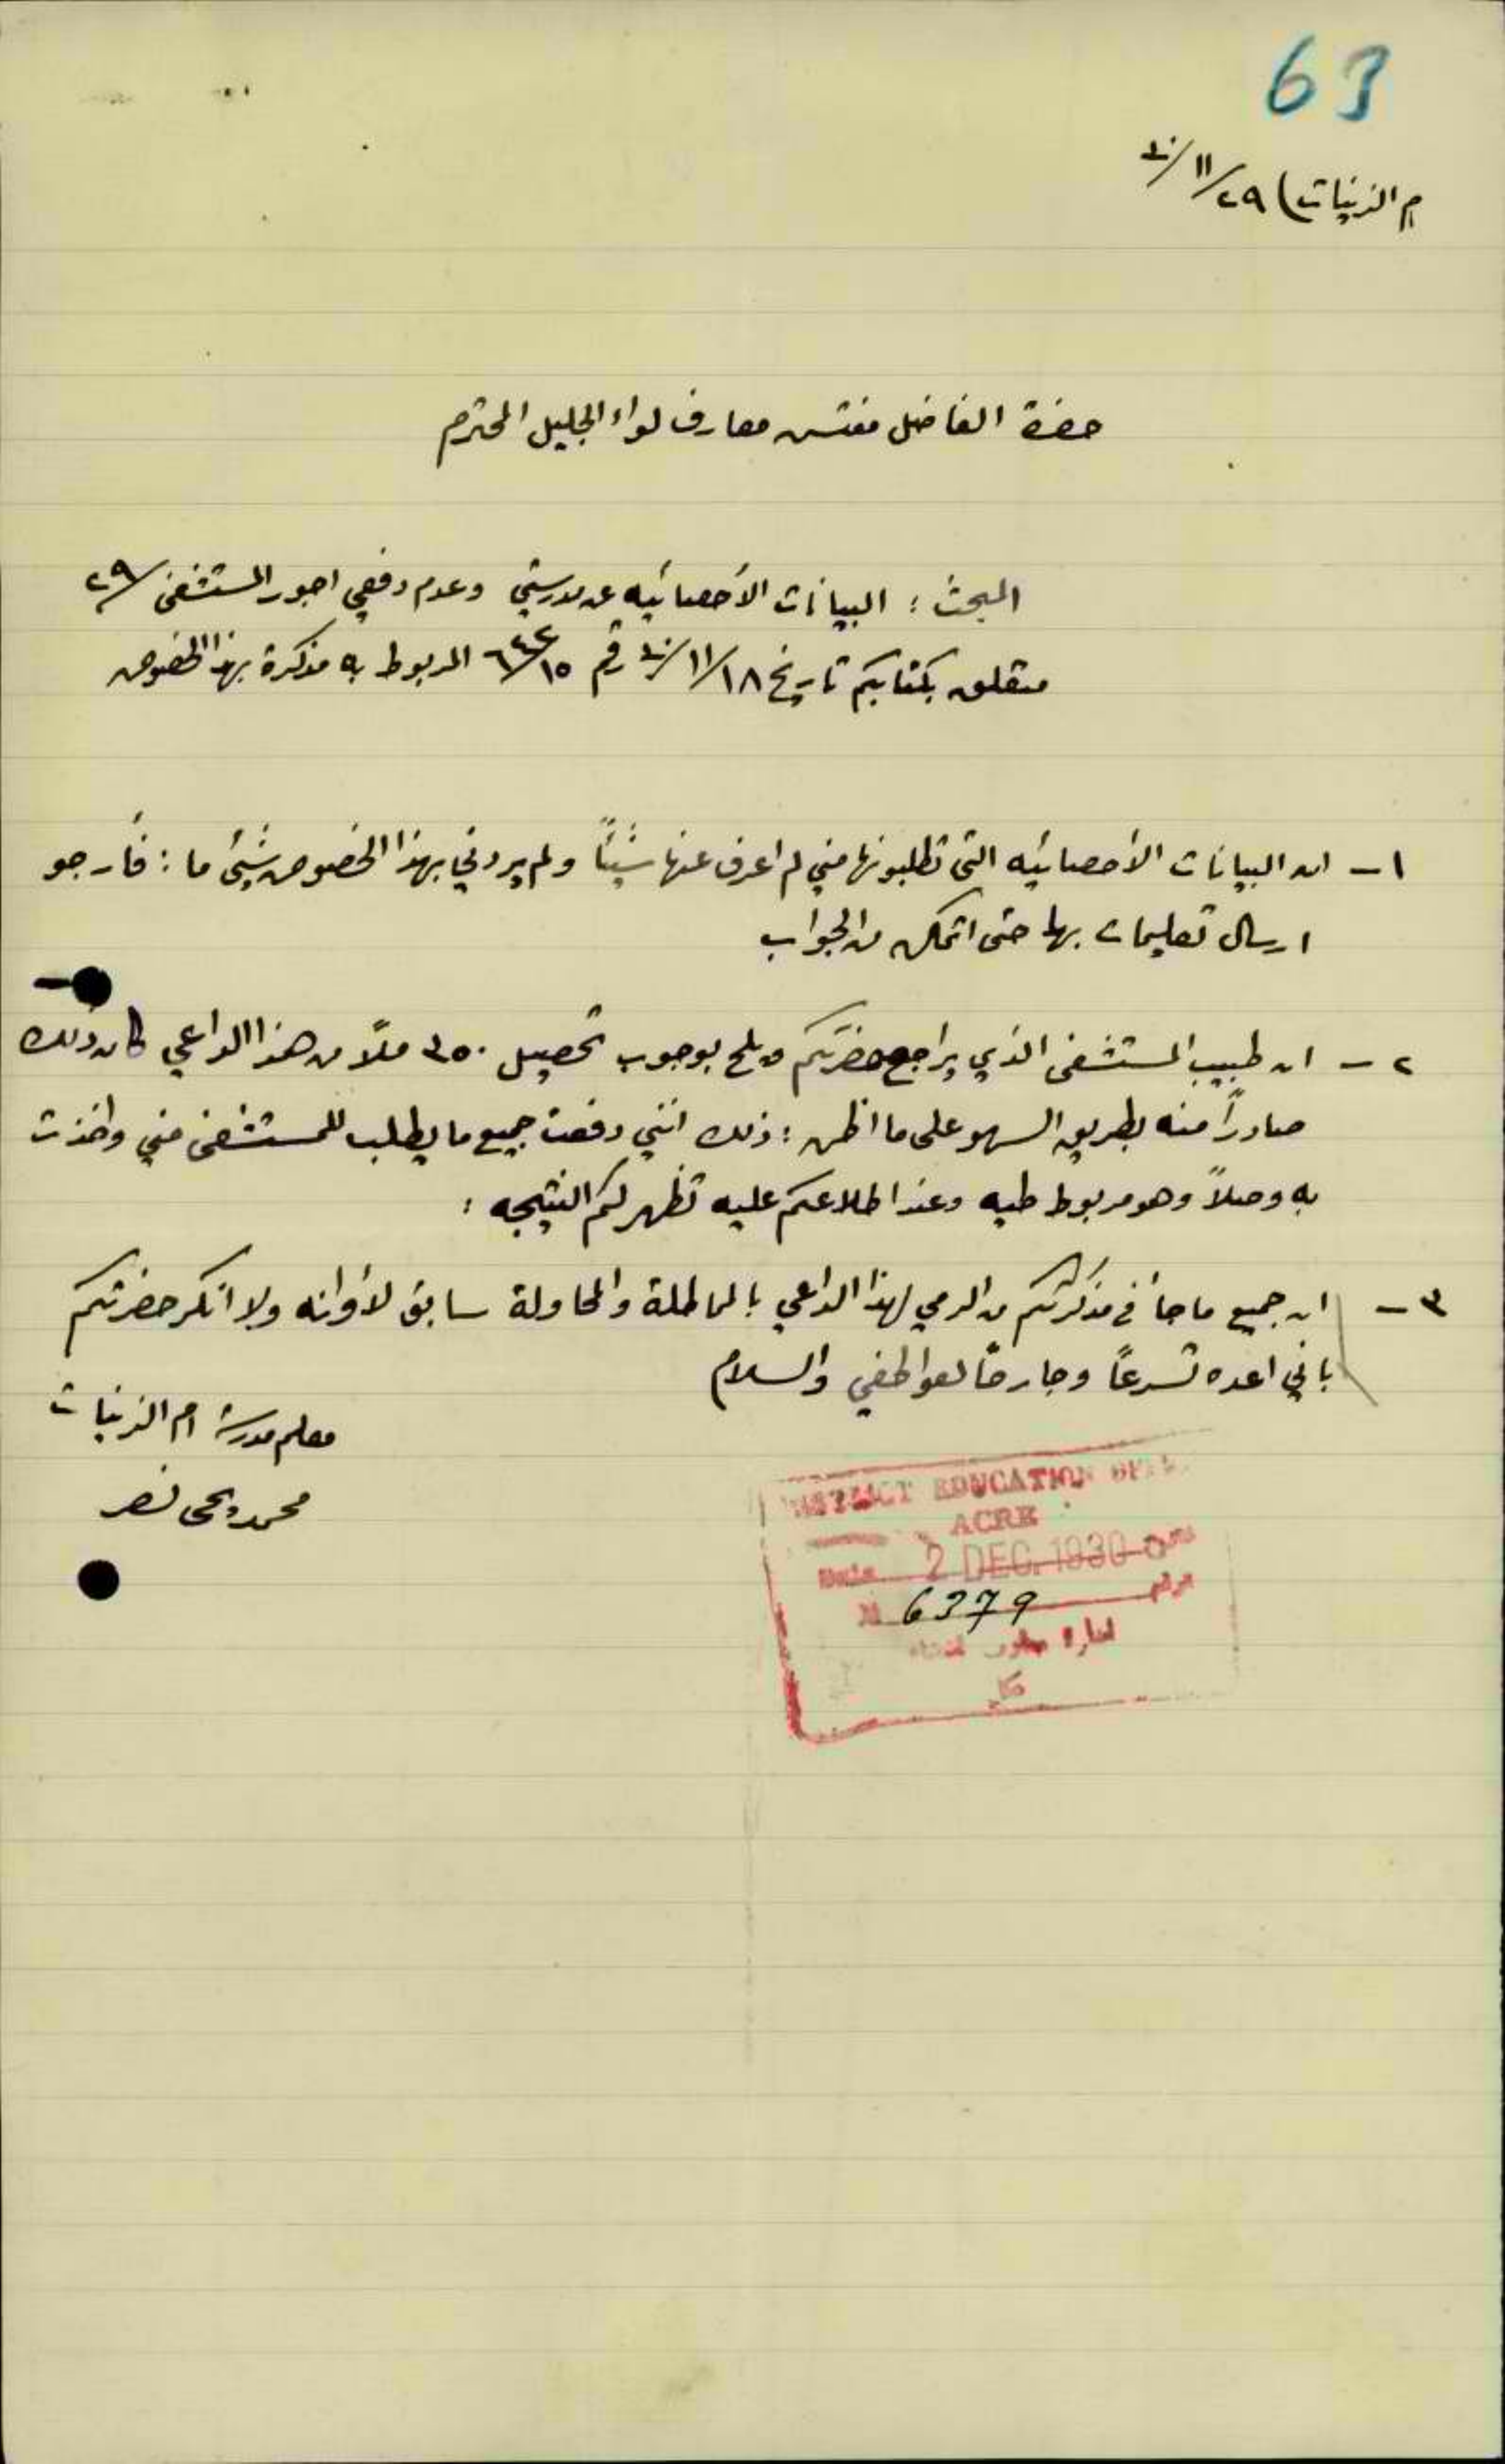 63
ام الزينات) ٢٩/١١/٣٠
حضرة الفاضل مفتش معارف لواء الجليل المحترم
البحث : البيانات الأحصائيه عن مدرستي وعدم دفعي اجور المستشفى /٢٩
متعلق بكتابكم تاريخ ١٨/١١/٣٠ رقم المربوط به مذكرة بهذا الخصوص
١ - ان البيانات الأحصائيه التي تطلبونها مني لم اعرف عنها شيئاً ولم يردني بهذا الخصوص شيئ ما : فأرجو
ارسال تعليمات بها حتى اتمكن من الجواب
٢ - ان طبيب المستشفى الذي يراجع حضرتكم ويلح بوجوب تحصيل ٣٥٠ ملاً من هذا الداعي كان ذلك
صادراً منه بطريق السهو على ما اظن : ذلك انني دفعت جميع ما يطلب للمستشفى مني واخذت
به وصلاً وهو مربوط طيه وعند اطلاعكم عليه تظهر لكم النتيجه :
٣ - ان جميع ما جأ في مذكرتكم من الرمي لهذا الداعي بالمماطلة والمحاولة سابق لأوانه ولا انكر حضرتكم
باني اعده تسرعاً وجارحاً لعواطفي والسلام
معلم مدرسة ام الزينات
محمد يحى نصر
DISTRICT EDUCATION OFF
ACRE
Date 2 DEC. 1930
N 6379 نمرة
ادارة معارف
عكا